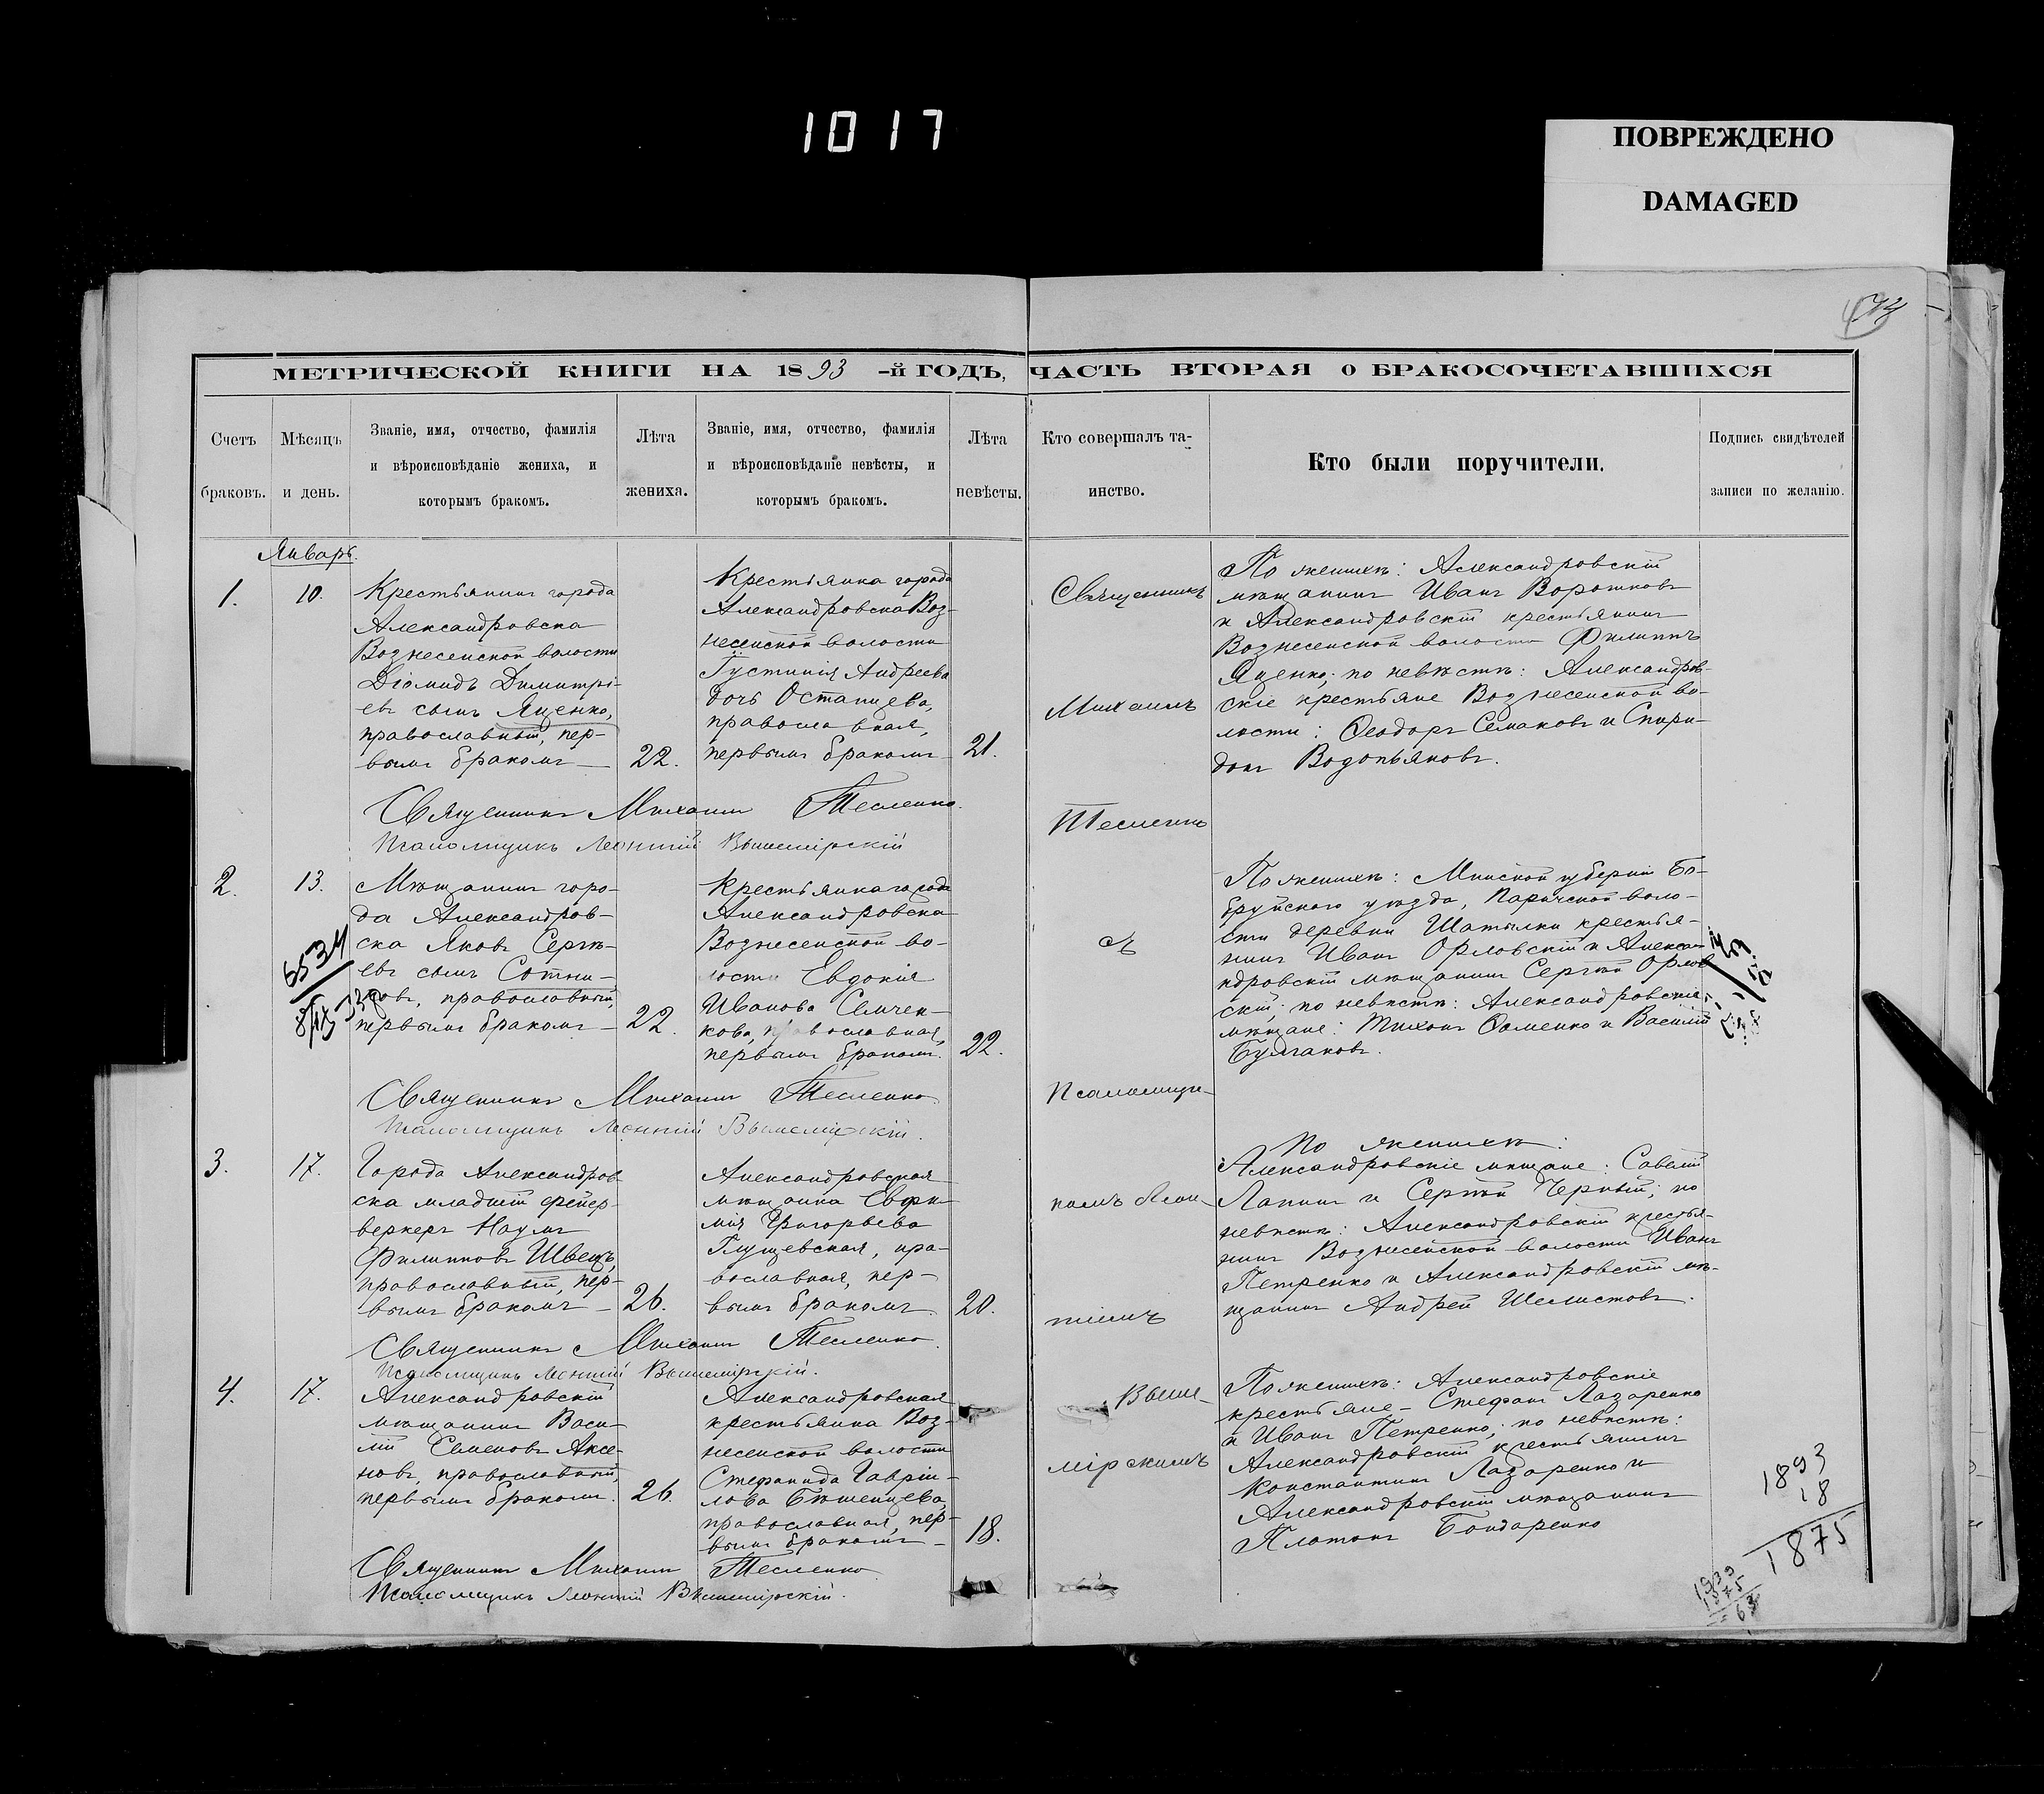 1017
ПОВРЕЖДЕНО
DAMAGED
МЕТРИЧЕСКОЙ КНИГИ НА 1893 -й ГОДЪ, ЧАСТЬ ВТОРАЯ О БРАКОСОЧЕТАВШИХСЯ
Счетъ
браковъ.
Мѣсяцъ
и день.
Званіе, имя, отчество, фамилія
и вѣроисповѣданіе жениха, и
которымъ бракомъ.
Лѣта
жениха.
Званіе, имя, отчество, фамилія
и вѣроисповѣданіе невѣсты, и
которымъ бракомъ.
Лѣта
невѣсты.
Кто совершалъ та-
инство.
Кто были поручители.
Подпись свидѣтелей
записи по желанію.
Январь.
1.
10.
Крестьянинъ города
Александровска
Вознесенской волости
Діомидъ Димитрі-
евъ сынъ Яценко,
православный, пер-
вымъ бракомъ —
22.
Крестьянка города
Александровска Воз-
несенской волости
Іустинія Андреева
дочь Остапцева,
православная,
первымъ бракомъ
21.
По женихѣ: Александровскій
мѣщанинъ Иванъ Воротковъ
и Александровскій крестьянинъ
Вознесенской волости Филиппъ
Яценко; по невѣстѣ: Александров-
скіе крестьяне Вознесенской во-
лости: Ѳеодоръ Семаковъ и Спири-
донъ Водопьяновъ.
Священникъ Михаилъ Тесленко.
Псаломщикъ Леонтій Вышемірскій
2.
13.
Мѣщанинъ горо-
да Александров-
ска Яковъ Сергѣ-
евъ сынъ Сотни-
ковъ, православный,
первымъ бракомъ —
22.
Крестьянка города
Александровска
Вознесенской во-
лости Евдокія
Иванова Семчен-
кова, православная,
первымъ бракомъ.
22.
По женихѣ: Минской губерніи Бо-
бруйскаго уѣзда, Паричской воло-
сти деревни Шатилки крестья-
нинъ Иванъ Орловскій и Алекса-
ндровскій мѣщанинъ Сергѣй Орлов
скій; по невѣстѣ: Александровскіе
мѣщане: Тихонъ Ѳоменко и Василій
Булгаковъ.
Священникъ Михаилъ Тесленко
Псаломщикъ Леонтій Вышемірскій.
3.
17.
Города Александров
ска младшій фейер-
веркеръ Наумъ
Филипповъ Швецъ,
православный, пер-
вымъ бракомъ —
26.
Александровская
мѣщанка Евфи-
мія Григорьева
Глущевская, пра-
вославная, пер-
вымъ бракомъ.
20.
По женихѣ:
Александровскіе мѣщане: Савелій
Лапинъ и Сергѣй Черный; по
невѣстѣ: Александровскій крестья-
нинъ Вознесенской волости Иванъ
Петренко и Александровскій мѣ-
щанинъ Андрей Шелистовъ.
Священникъ Михаилъ Тесленко.
Псаломщикъ Леонтій Вышемірскій.
4.
17.
Александровскій
мѣщанинъ Васи-
лій Семеновъ Аксе-
новъ, православный,
первымъ бракомъ.
26.
Александровская
крестьянка Воз-
несенской волости
Стефанида Гавріи-
лова Бѣшенцева,
православная, пер-
вымъ бракомъ —
18.
По женихѣ: Александровскіе
крестьяне — Стефанъ Лазаренко
и Иванъ Петренко; по невѣстѣ:
Александровскій крестьянинъ
Константинъ Лазаренко и
Александровскій мѣщанинъ
Платонъ Бондаренко
Священникъ Михаилъ Тесленко
Псаломщикъ Леонтій Вышемірскій.
Священникъ
Михаилъ
Тесленко
съ
Псаломщи-
комъ Леон-
тіемъ
Выше-
мірскимъ
1893
18
1875
1939
1875
63